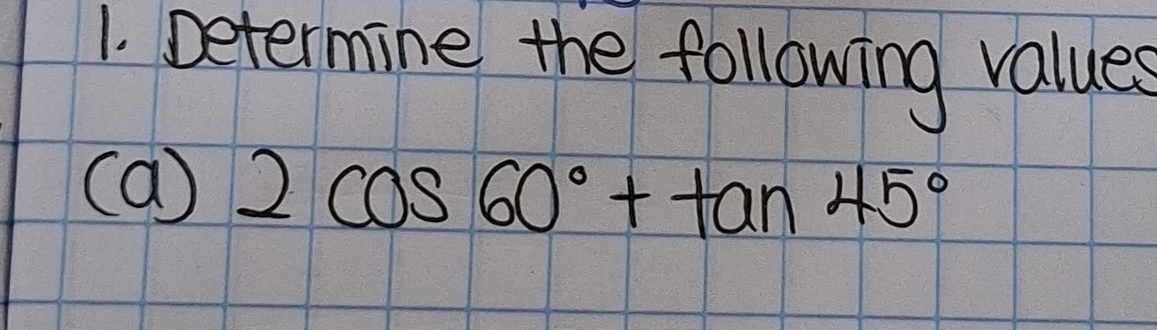 1. Determine the following values
(a) 2 cos 60° + tan 45°